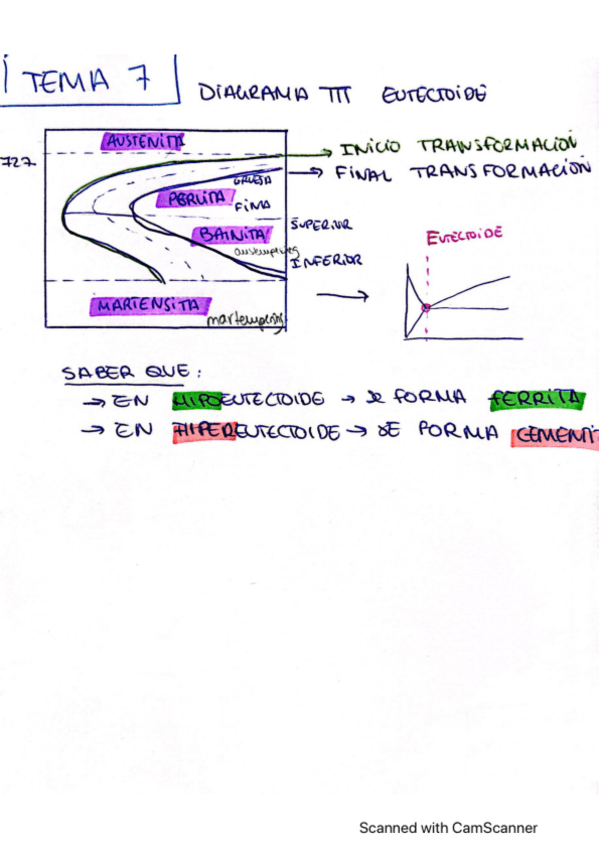 TEMA 7
DIAGRAMA TTT EUTECTOIDE
AUSTENITA
727
INICIO TRANSFORMACIÓN
FINAL TRANSFORMACIÓN
GRUESA
PERLITA
FINA
SUPERIOR
BAINITA
austempering
INFERIOR
EUTECTOIDE
MARTENSITA
martempering
SABER QUE:
→ EN HIPOEUTECTOIDE → SE FORMA FERRITA
→ EN HIPEREUTECTOIDE → SE FORMA CEMENTI
Scanned with CamScanner